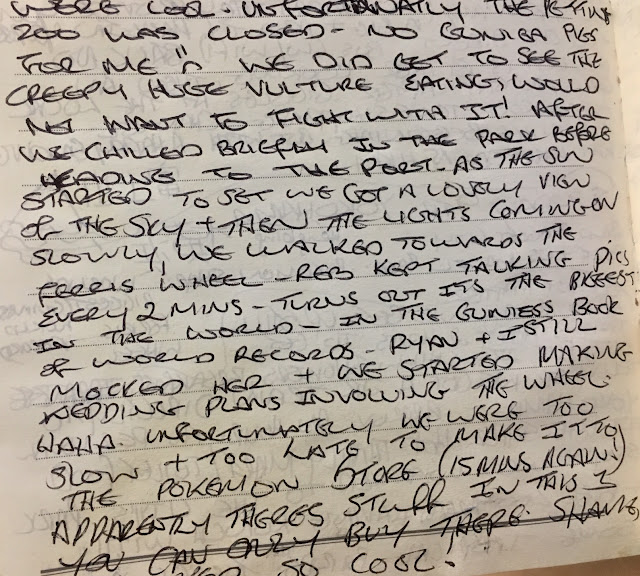 WERE COOL. UNFORTUNATLY THE PETTING
ZOO WAS CLOSED - NO GUNIEA PIGS
FOR ME :( WE DID GET TO SEE THE
CREEPY HUGE VULTURE EATING, WOULD
NOT WANT TO FIGHT WITH IT! AFTER
WE CHILLED BRIEFLY IN THE PARK BEFORE
HEADING TO THE PORT. AS THE SUN
STARTED TO SET WE GOT A LOVELY VIEW
OF THE SKY + THEN THE LIGHTS COMING ON
SLOWLY, WE WALKED TOWARDS THE
FERRIS WHEEL - REB KEPT TALKING PICS
EVERY 2 MINS - TURNS OUT ITS THE BIGGEST
IN THE WORLD - IN THE GUNIESS BOOK
OF WORLD RECORDS - RYAN + I STILL
MOCKED HER + WE STARTED MAKING
WEDDING PLANS INVOLVING THE WHEEL.
HAHA. UNFORTUNATELY WE WERE TOO
SLOW + TOO LATE TO MAKE IT TO
THE POKEMON STORE (15 MINS AGAIN!)
APPARENTLY THERES STUFF IN THIS 1
YOU CAN ONLY BUY THERE. SHAME,
SO COOL.